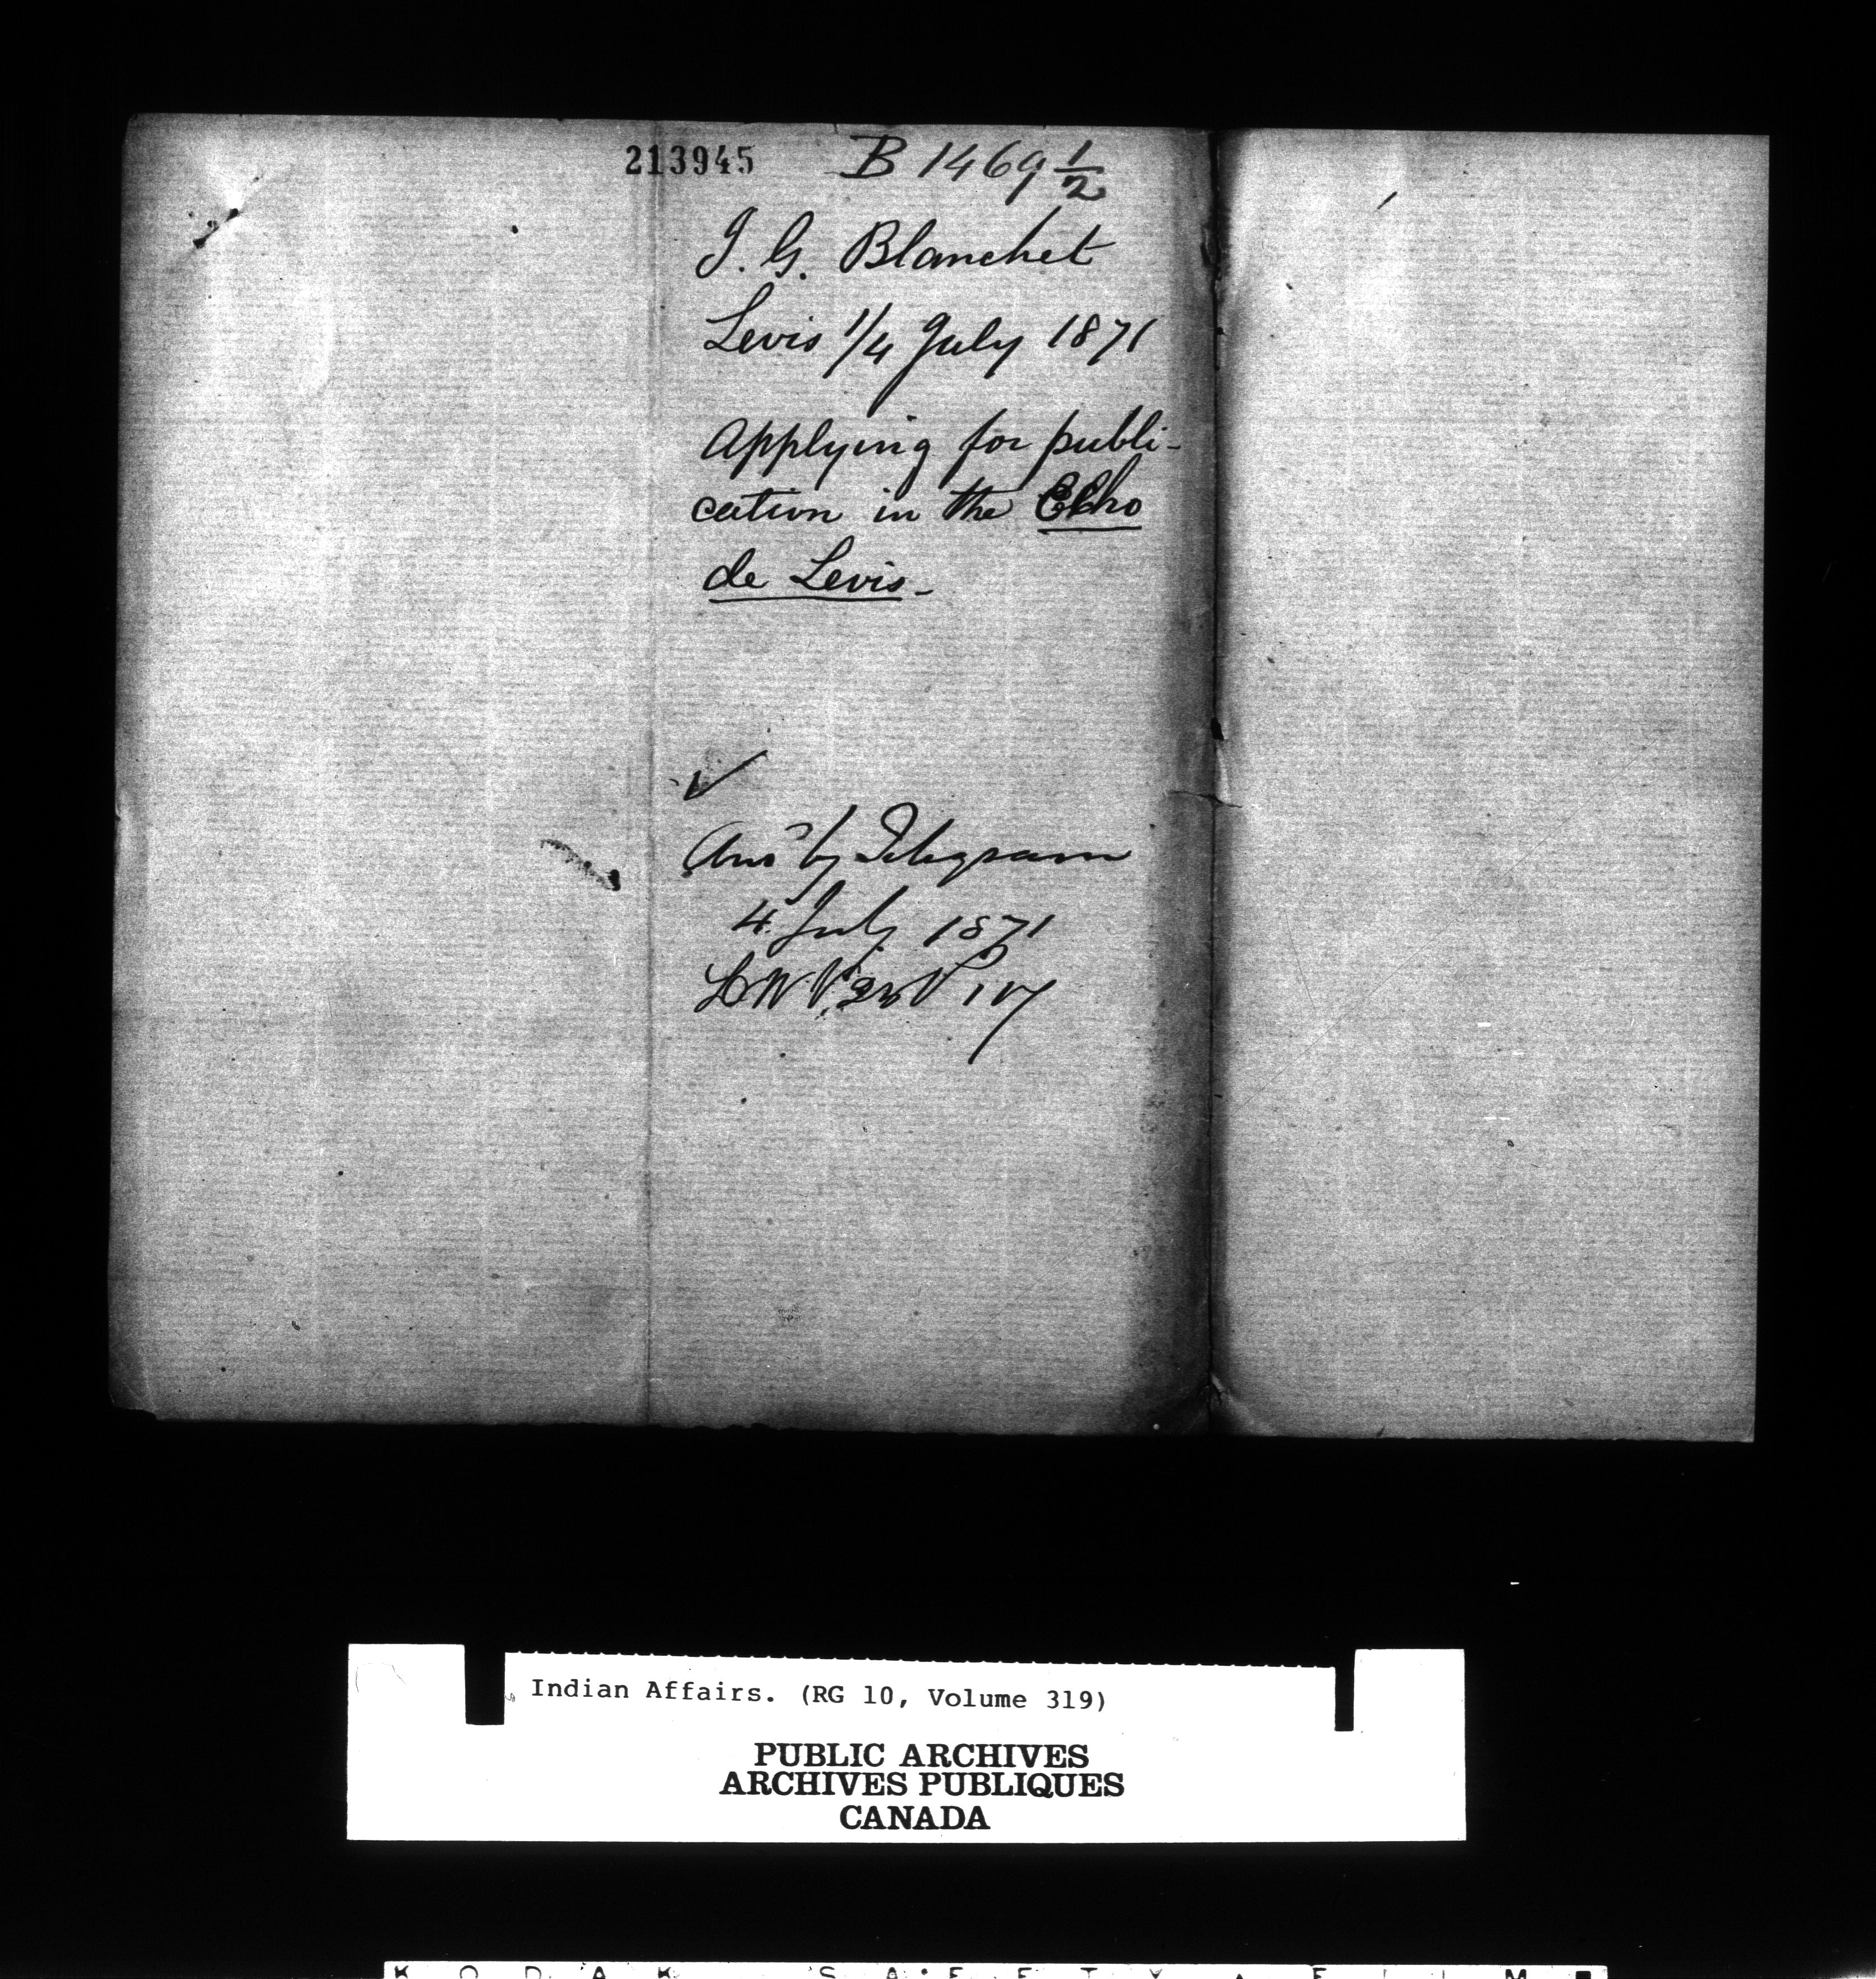 213945 B 1469 1/2
J. G. Blanchet
Levis 1/4 July 1871
Applying for publi-
cation in the Echo
de Levis_
✓
Ansd by Telegram
4 July 1871
Indian Affairs. (RG 10, Volume 319)
PUBLIC ARCHIVES
ARCHIVES PUBLIQUES
CANADA
KODAK SAFETY FILM